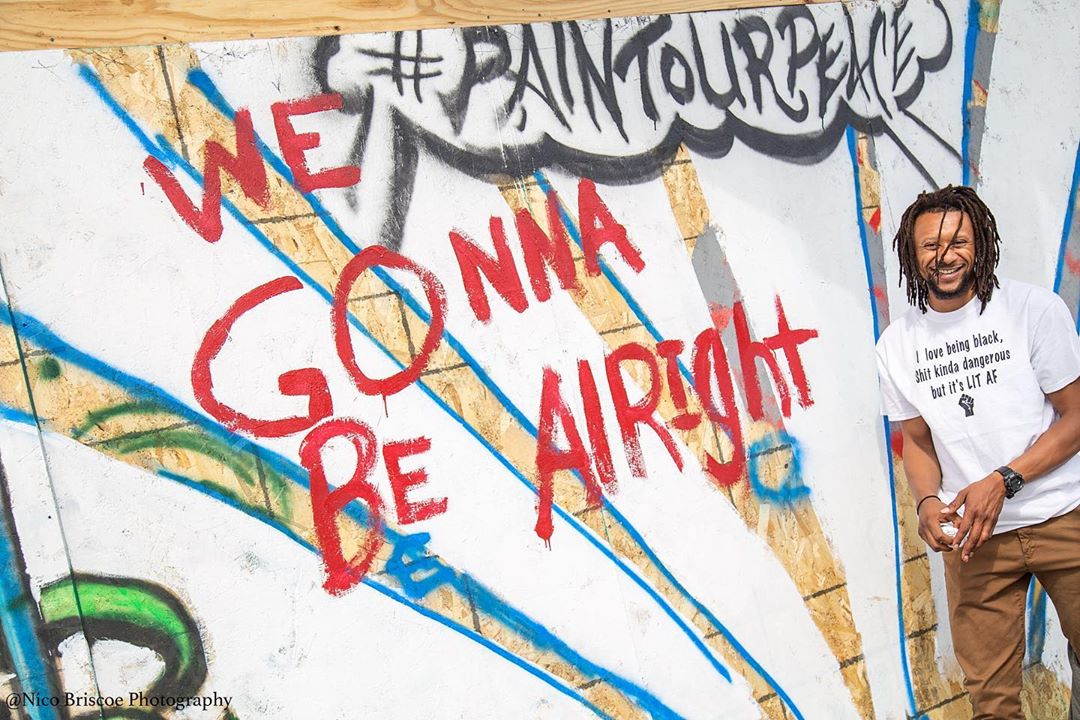 #PAINTOURPEACE
WE
GONNA
BE AlRight
I love being black,
Shit kinda dangerous
but it's LIT AF
@Nico Briscoe Photography